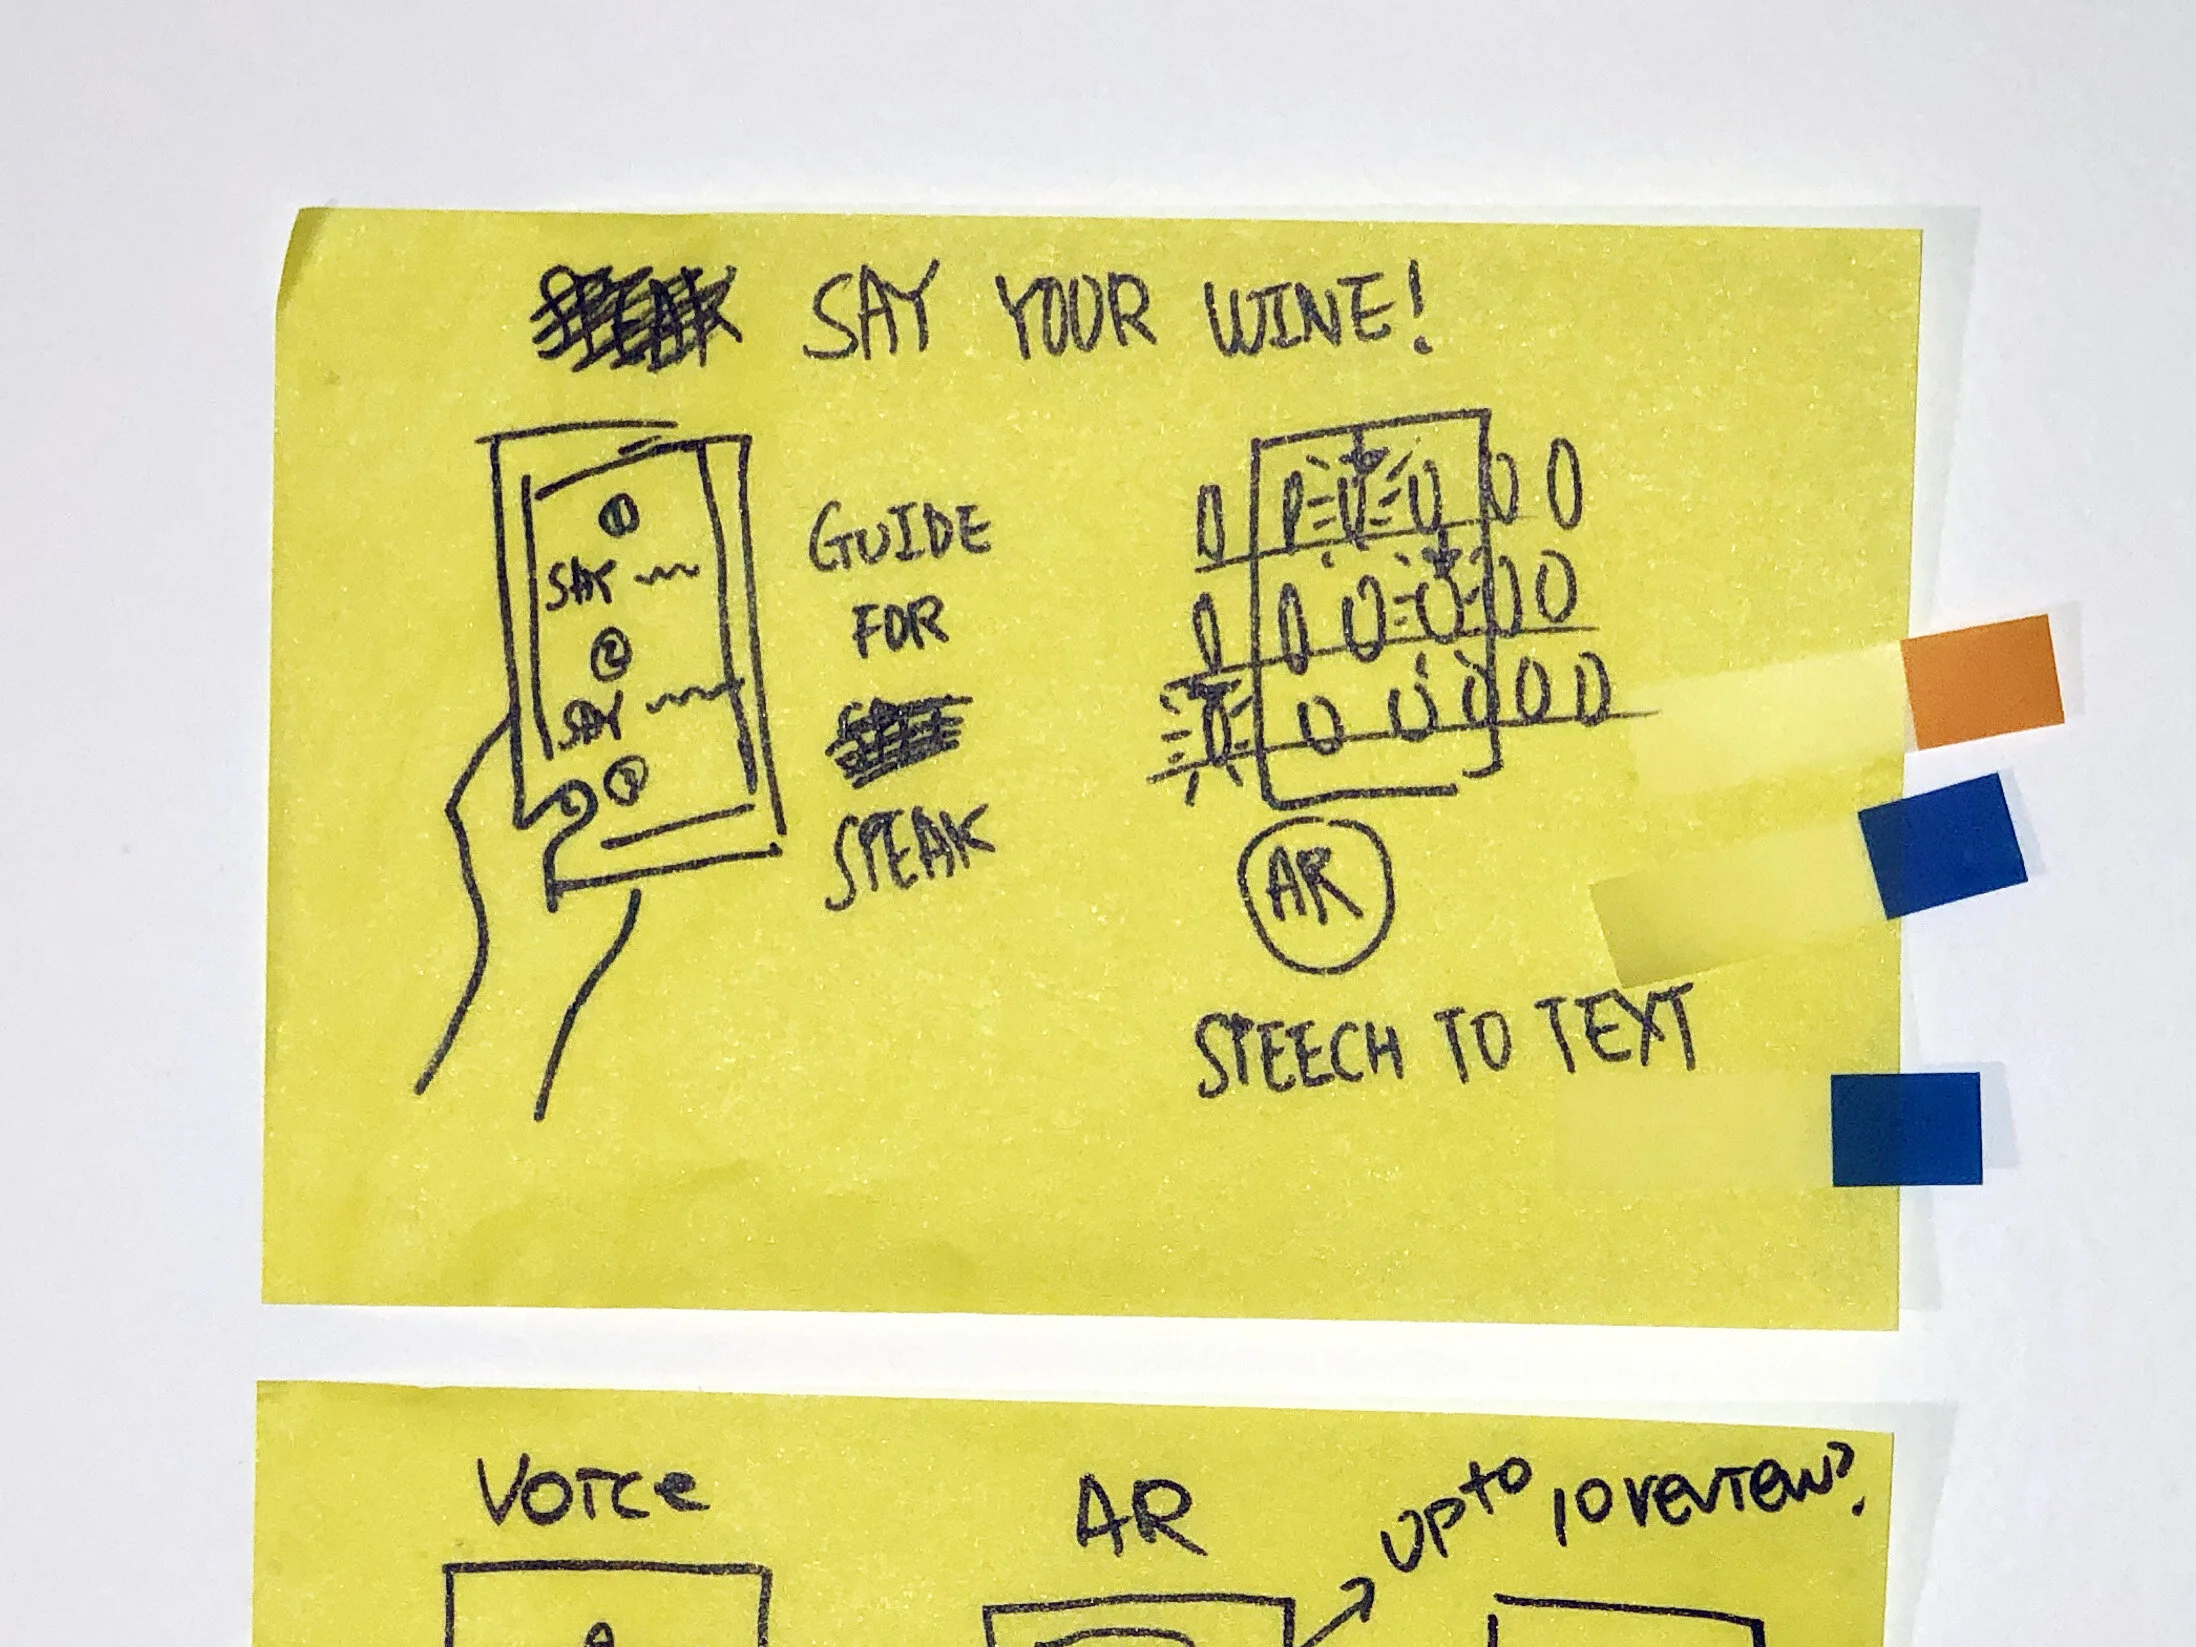 SAY YOUR WINE!
1
SAY
2
SAY
3
GUIDE
FOR
SPEAK
AR
SPEECH TO TEXT
VOICE
AR
up to
10 review?